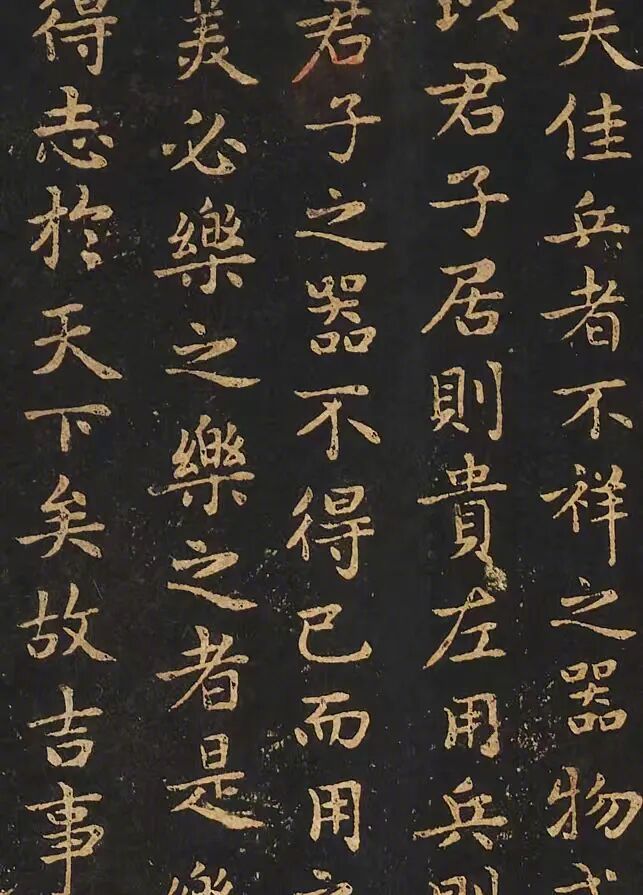 夫佳兵者不祥之器物
以君子居則貴左用兵則
君子之器不得已而用之
美必樂之樂之者是樂
得志於天下矣故吉事